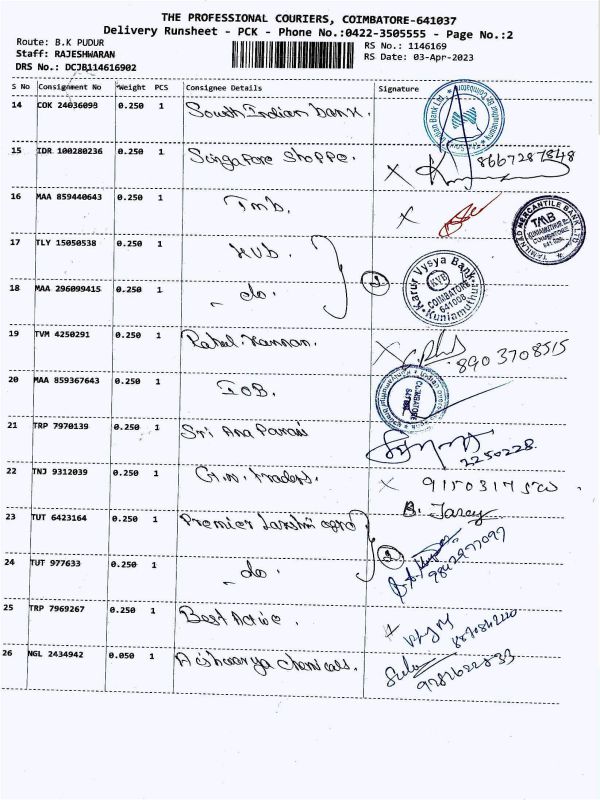 THE PROFESSIONAL COURIERS, COIMBATORE-641037
Delivery Runsheet - PCK - Phone No.:0422-3505555 - Page No.:2
Route: B.K PUDUR
Staff: RAJESHWARAN
DRS No.: DCJB114616902
RS No.: 1146169
RS Date: 03-Apr-2023
S No Consignment No Weight PCS Consignee Details Signature
14 COK 24036098 0.250 1 South Indian bank.
15 IDR 100280236 0.250 1 Singapore Shoppe. X 8667287848
16 MAA 859440643 0.250 1 TMB. X
TAMILNAD MERCANTILE BANK LTD TMB COIMBATORE
17 TLY 15050538 0.250 1 KVB.
18 MAA 296099415 0.250 1 - do. 2
Karur Vysya Bank KVB COIMBATORE 641008 Kuniamuthur
19 TVM 4250291 0.250 1 Rahul Kannan. X 8903708515
20 MAA 859367643 0.250 1 IOB.
COIMBATORE
21 TRP 7970139 0.250 1 Sri Ana 2250228
22 TNJ 9312039 0.250 1 G.M. Traders. X
23 TUT 6423164 0.250 1 Premier Lakshmi
24 TUT 977633 0.250 1 - do. 2 9842977097
25 TRP 7969267 0.250 1 Best Active.
26 NGL 2434942 0.050 1 Aishwarya Chemicals.